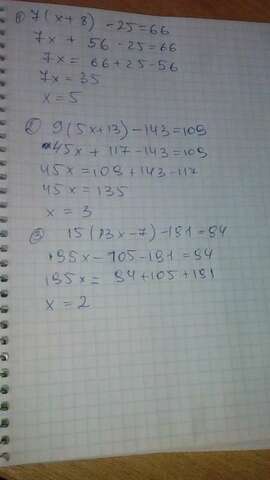 ① 7(x+8) -25=66
7x + 56 -25=66
7x = 66+25-56
7x = 35
x=5
② 9(5x+13)-143=109
45x+117-143=109
45x=109+143-117
45x=135
x = 3
③ 15(13x-7)-191=94
195x-105-191=94
195x= 94+105+191
x=2